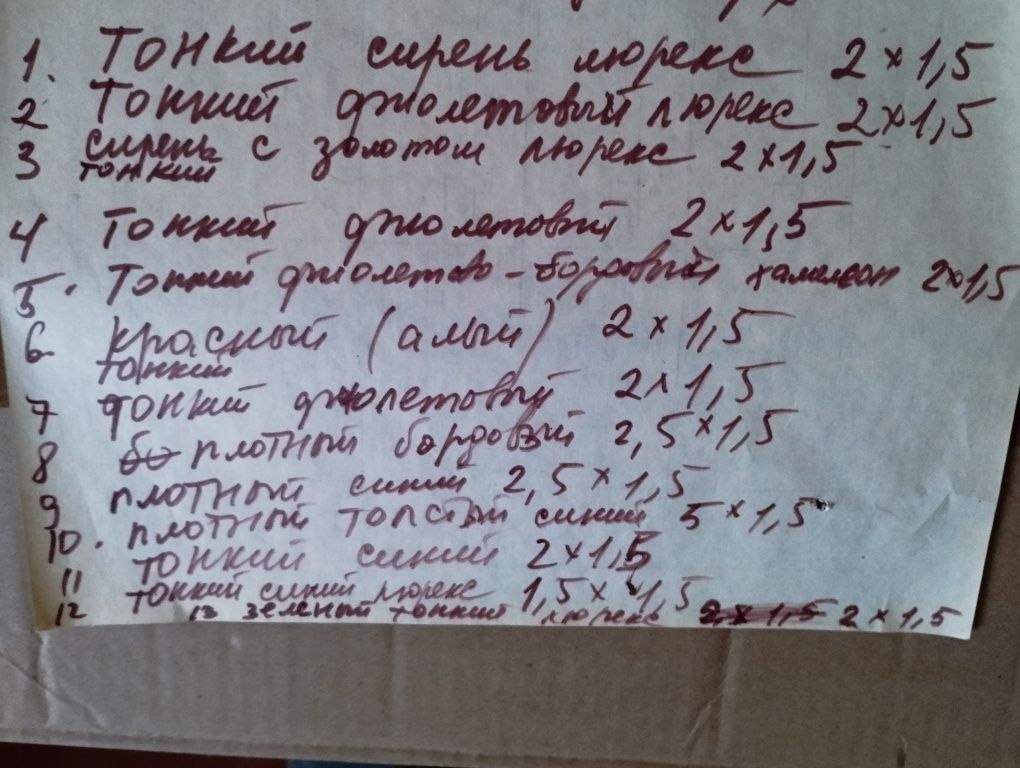 1. Тонкий сирень люрекс 2 × 1,5
2 Тонкий фиолетовый люрекс 2 × 1,5
3 сирень с золотом люрекс 2 × 1,5
тонкий
4 Тонкий фиолетовый 2 × 1,5
5. Тонкий фиолетово-бордовый хамилеон 2 × 1,5
6 красный (алый) 2 × 1,5
тонкий
7 тонкий фиолетовый 2 × 1,5
8 бо плотный бордовый 2,5 × 1,5
9 плотный синий 2,5 × 1,5
10. плотный толстый синий 5 × 1,5
11 тонкий синий 2 × 1,5
12 тонкий синий люрекс 1,5 × 1,5
13 зеленый тонкий люрекс 2 × 1,5 2 × 1,5